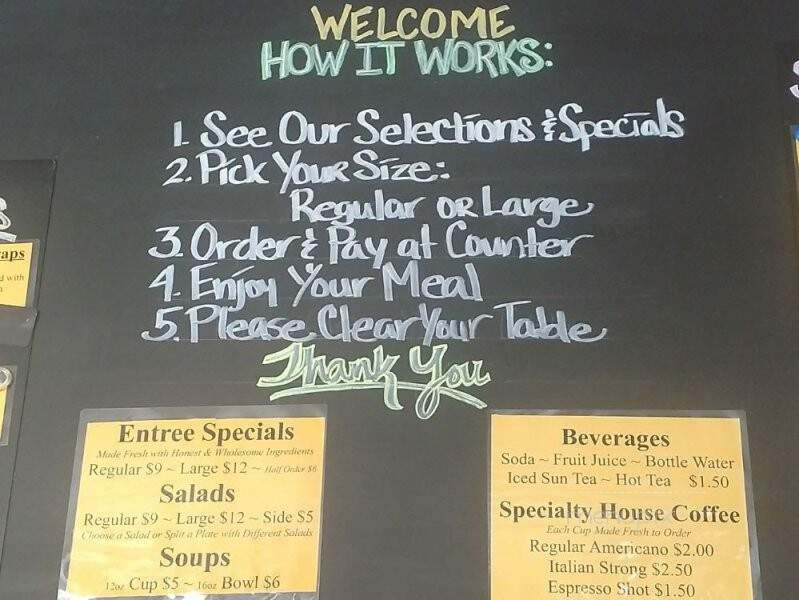 WELCOME
HOW IT WORKS:
1. See Our Selections & Specials
2. Pick Your Size:
Regular or Large
3. Order & Pay at Counter
4. Enjoy Your Meal
5. Please Clear Your Table
Thank You
aps
d with
Entree Specials
Made Fresh with Honest & Wholesome Ingredients
Regular $9 ~ Large $12 ~ Half Order $6
Salads
Regular $9 ~ Large $12 ~ Side $5
Choose a Salad or Split a Plate with Different Salads
Soups
12oz Cup $5 ~ 16oz Bowl $6
Beverages
Soda ~ Fruit Juice ~ Bottle Water
Iced Sun Tea ~ Hot Tea $1.50
Specialty House Coffee
Each Cup Made Fresh to Order
Regular Americano $2.00
Italian Strong $2.50
Espresso Shot $1.50